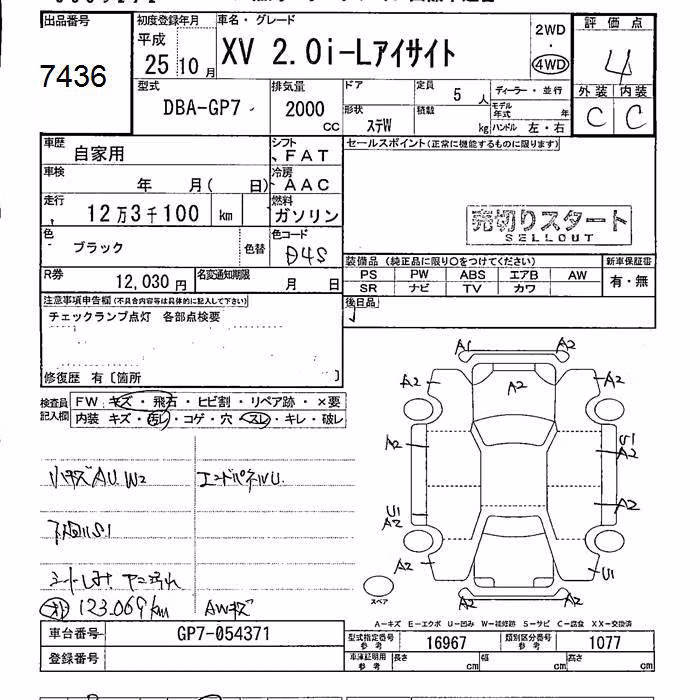 出品番号
7436
初度登録年月
平成
25年10月
車名・グレード
XV 2.0i-Lアイサイト
2WD
・
4WD
評価点
4
外装 内装
C C
型式
DBA-GP7
排気量
2000
CC
ドア
形状
ステW
定員
5人
積載
kg
ディーラー・並行
モデル年式
年
ハンドル 左・右
車歴
自家用
シフト
FAT
車検
年 月( 日)
冷房
AAC
走行
12万3千100 km
燃料
ガソリン
色
ブラック
色替
色コード
D4S
セールスポイント(正常に機能するものに限ります)
売切りスタート
SELLOUT
装備品(純正品に限り〇をつけてください)
新車保証書
PS PW ABS エアB AW
SR ナビ TV カワ
有・無
R券
12,030円
名変通知期限
月 日
後日品
注意事項申告欄(不具合内容等は具体的に記入して下さい)
チェックランプ点灯 各部点検要
修復歴 有〔箇所 〕
検査員
記入欄
FW キズ・飛石・ヒビ割・リペア跡・×要
内装 キズ・汚レ・コゲ・穴・スレ・キレ・破レ
AU.W2
エンドパネルU.
S1
123.069km
AWキズ
A1 A2
A2 A2 A2
A2 S1
A2
U1
A2 A2
A2 U1
A2 A2
スペア
A-キズ E-エクボ U-凹み W-補修跡 S-サビ C-腐食 XX-交換済
車台番号
GP7-054371
登録番号
型式指定番号
参考
16967
類別区分番号
参考
1077
車庫証明用
参考
長さ cm 幅 cm 高さ cm